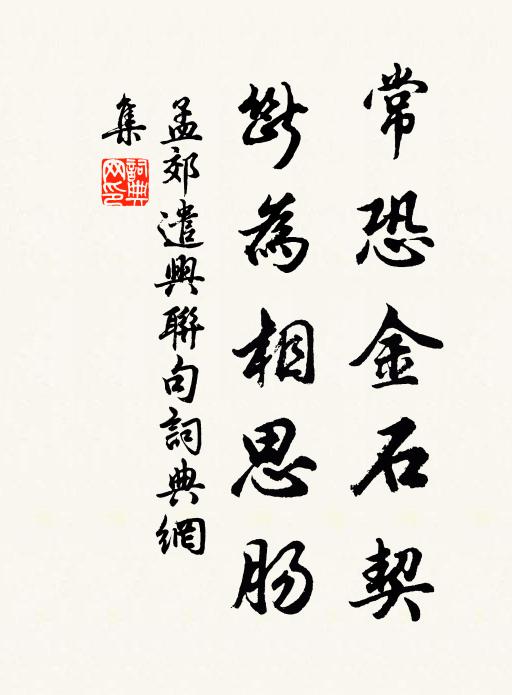 常恐金石契
斷為相思肠
孟郊遣興聯句詞典網
集
詞典網印